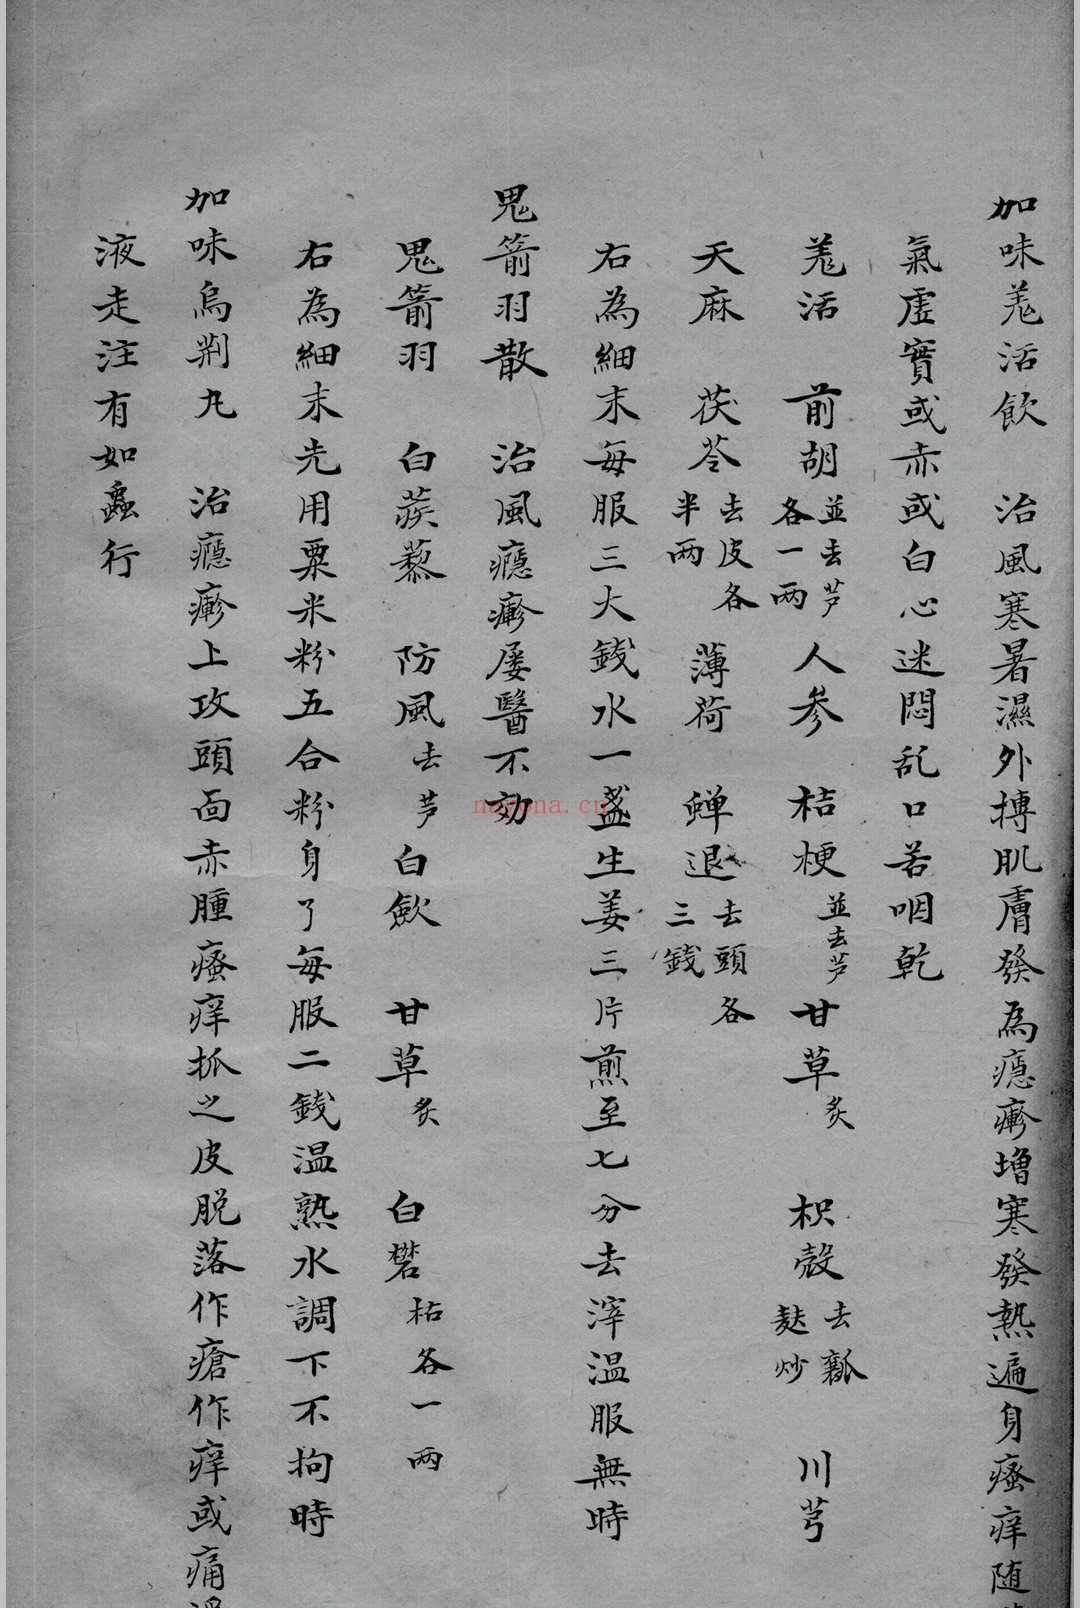 加味羗活飲　治風寒暑濕外摶肌膚發為癮㾕增寒發熱遍身瘙痒随
氣虛實或赤或白心迷悶乱口苦咽乾
羗活　前胡並去芦各一两　人參　桔梗並去芦　甘草炙　枳殼去瓤麸炒　川芎
天麻　茯苓去皮各半两　薄荷　蟬退去頭各三錢
右為細末每服三大錢水一盞生姜三片煎至七分去滓温服無時
鬼箭羽散　治風癮㾕屡醫不効
鬼箭羽　白蒺藜　防風去芦　白歛　甘草炙　白礬枯各一两
右為細末先用粟米粉五合粉身了每服二錢温熟水調下不拘時
加味烏荆丸　治癮㾕上攻頭面赤腫瘙痒抓之皮脱落作瘡作痒或痛
液走注有如蟲行
nayona.cn